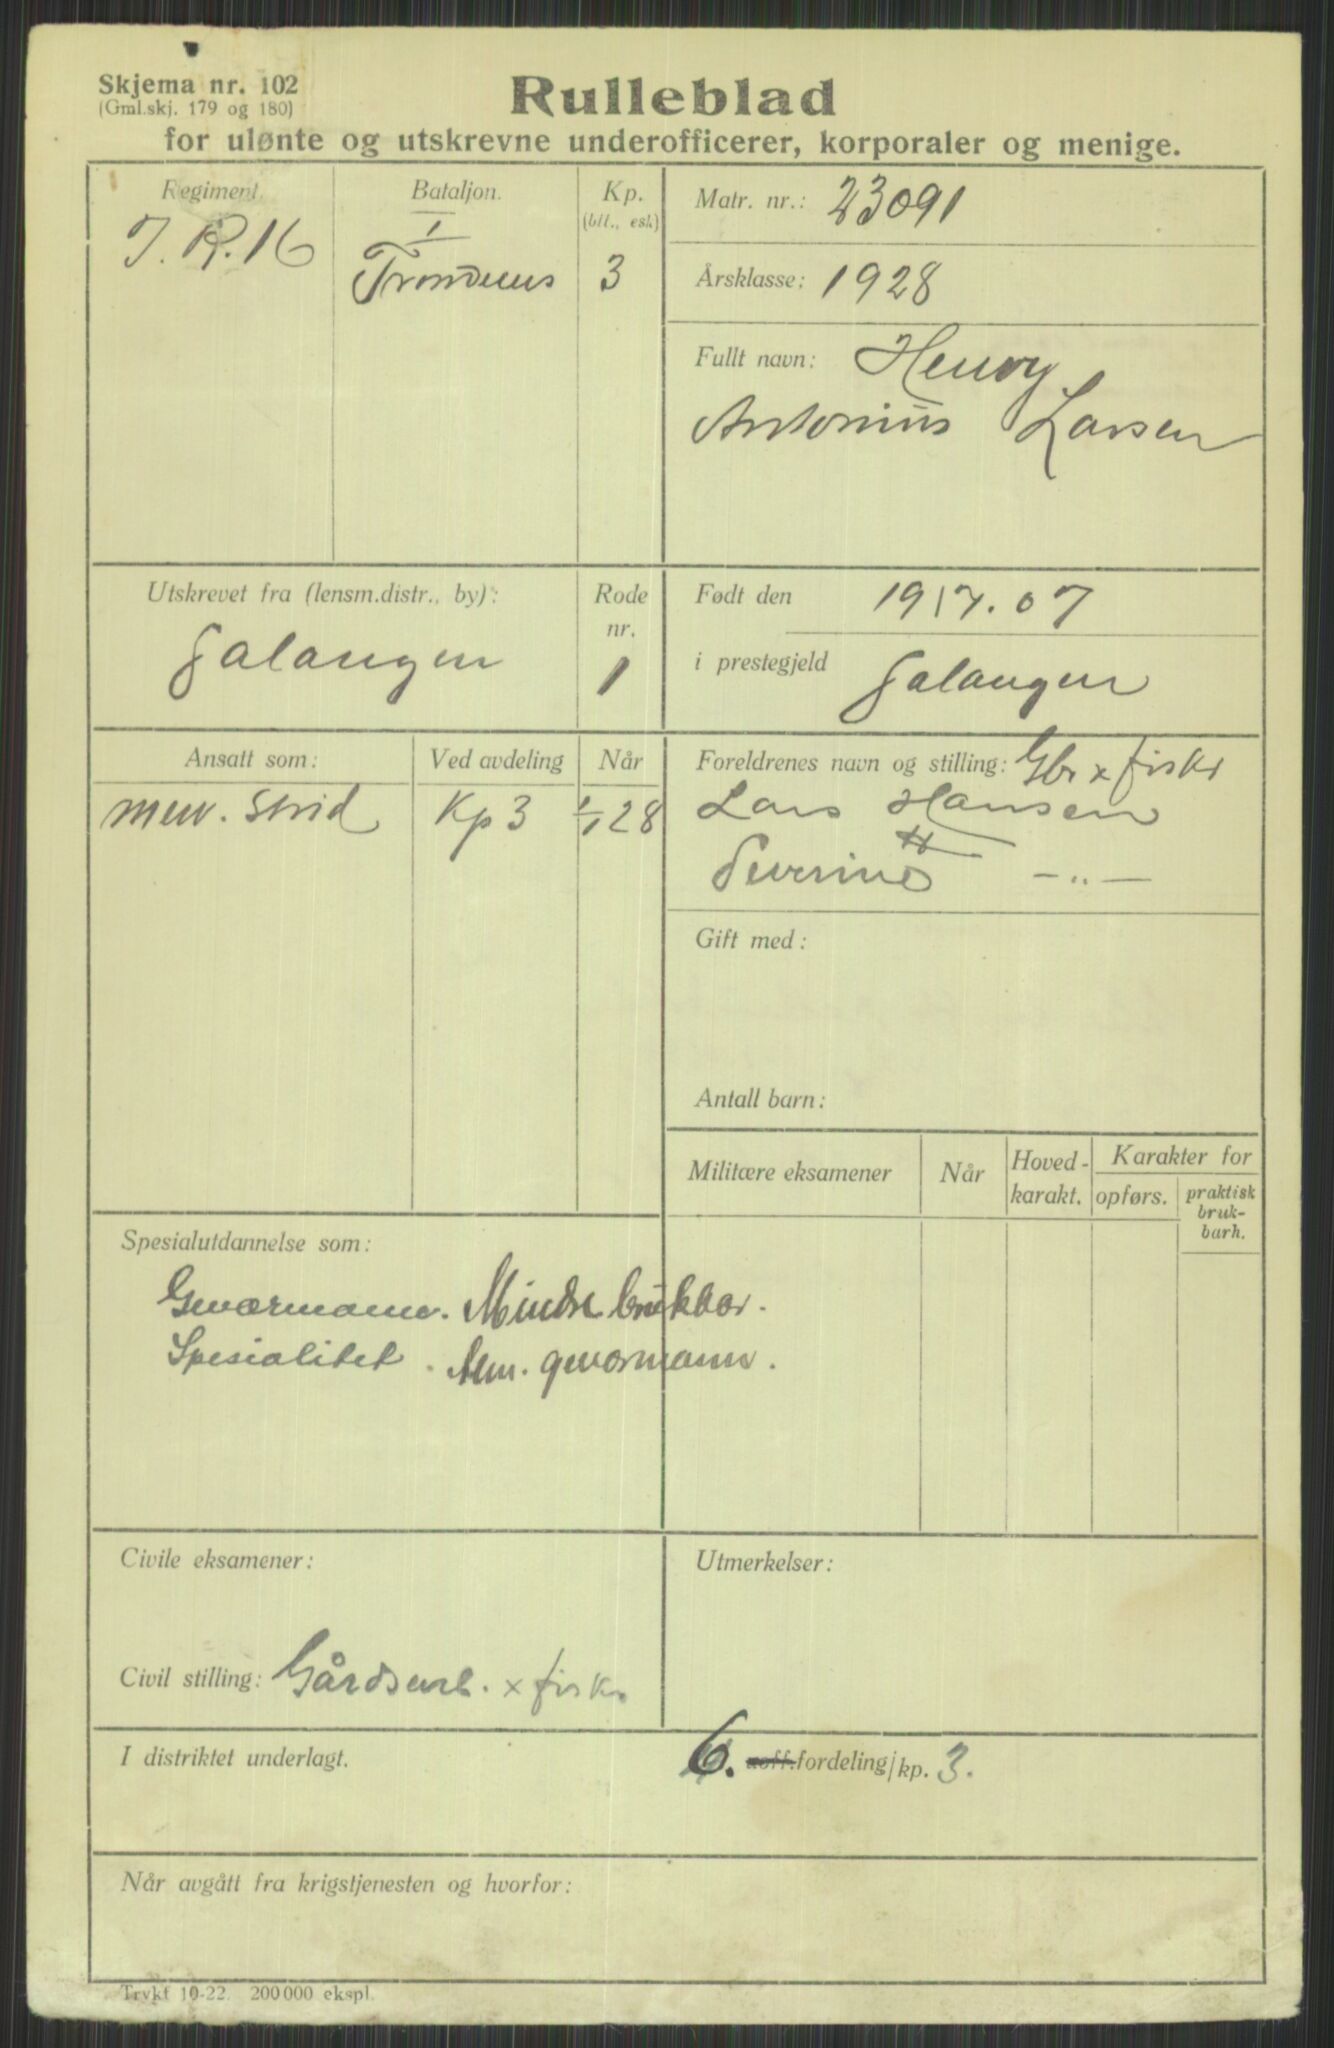 Skjema nr. 102
(Gml.skj. 179 og 180)
Rulleblad
for ulønte og utskrevne underofficerer, korporaler og menige.
Regiment.
J. R. 16
Bataljon.
I
Trondenes
Kp.
(btt., esk)
3
Matr. nr.: 23091
Årsklasse: 1928
Fullt navn: Henry
Antonius Larsen
Utskrevet fra (lensm.distr., by):
Salangen
Rode
nr.
1
Født den 19 17/7. 07
i prestegjeld Salangen
Ansatt som:
men. strid
Ved avdeling
Kp 3
Når
1/1 28
Foreldrenes navn og stilling: Gbr x fiskr
Lars Hansen
Severine H —„—
Gift med:
Antall barn:
Militære eksamener
Når
Hoved-
karakt.
Karakter for
opførs.
praktisk
bruk-
barh.
Spesialutdannelse som:
Geværmann. Mindre brukbar.
Spesialitet. Alm. geværmann.
Civile eksamener:
Civil stilling: Gårdsarb. x fiskr.
Utmerkelser:
I distriktet underlagt.
6. uoff.fordeling/kp. 3.
Når avgått fra krigstjenesten og hvorfor:
Trykt 10-22. 200 000 ekspl.